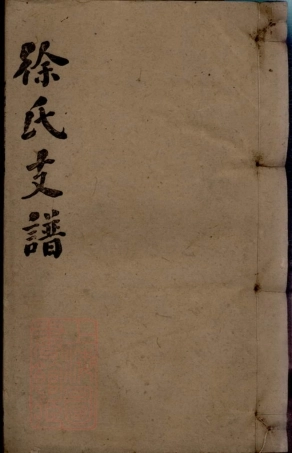 徐氏支譜